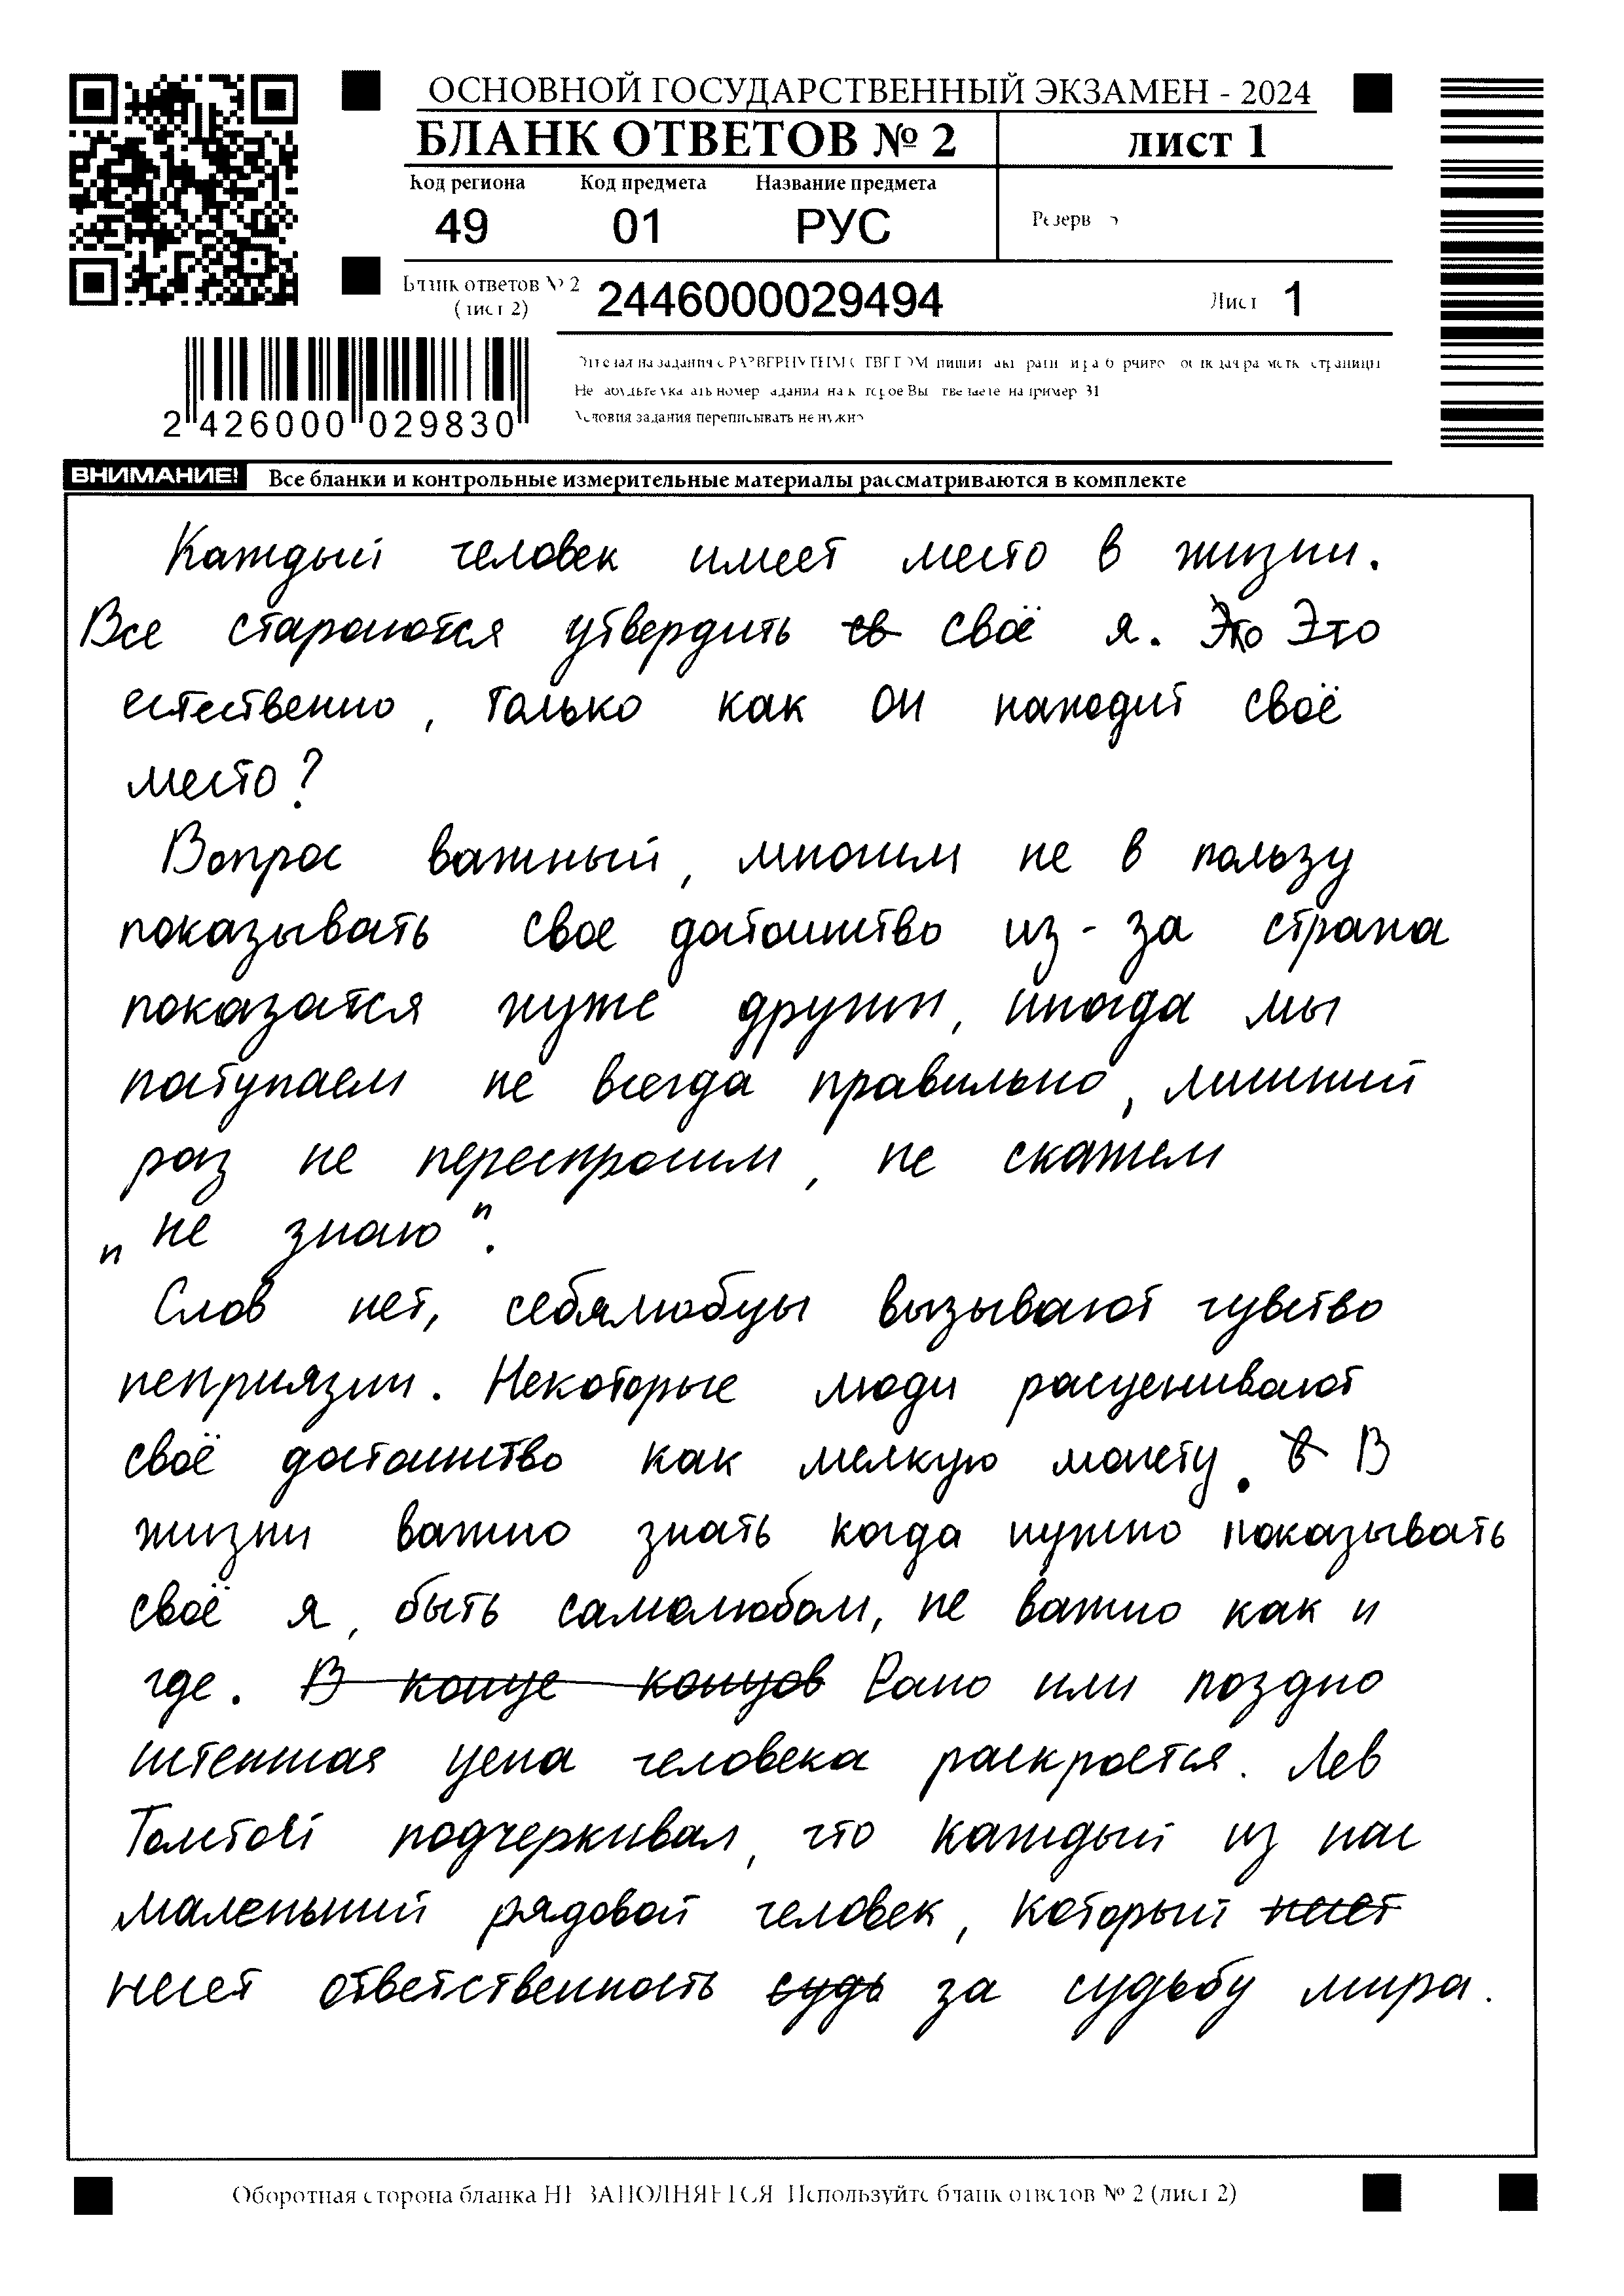 ОСНОВНОЙ ГОСУДАРСТВЕННЫЙ ЭКЗАМЕН - 2024
БЛАНК ОТВЕТОВ № 2
лист 1
Код региона Код предмета Название предмета
49 01 РУС
Резерв
Бланк ответов № 2
(лист 2)
2446000029494
Лист 1
2 426000 029830
Условия задания переписывать не нужно
ВНИМАНИЕ! Все бланки и контрольные измерительные материалы рассматриваются в комплекте
Каждый человек имеет место в жизни.
Все стараются утвердить св своё я. Это Это
естественно, только как он находит своё
место?
Вопрос важный, многим не в пользу
показывать свое достоинство из-за страха
показатся хуже других, иногда мы
поступаем не всегда правильно, лишний
раз не переспросим, не скажем
„не знаю".
Слов нет, себялюбцы вызывают чувство
неприязни. Некоторые люди расценивают
своё достоинство как мелкую монету. в В
жизни важно знать когда нужно показывать
своё я, быть самолюбом, не важно как и
где. В конце концов Рано или поздно
истенная цена человека раскроется. Лев
Толстой подчеркивал, что каждый из нас
маленьний рядовой человек, который несет
несет ответственность судь за судьбу мира.
Оборотная сторона бланка НЕ ЗАПОЛНЯЕТСЯ. Используйте бланк ответов № 2 (лист 2)